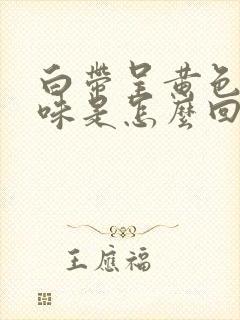 白帶呈黄色
味是怎麼回
王應福